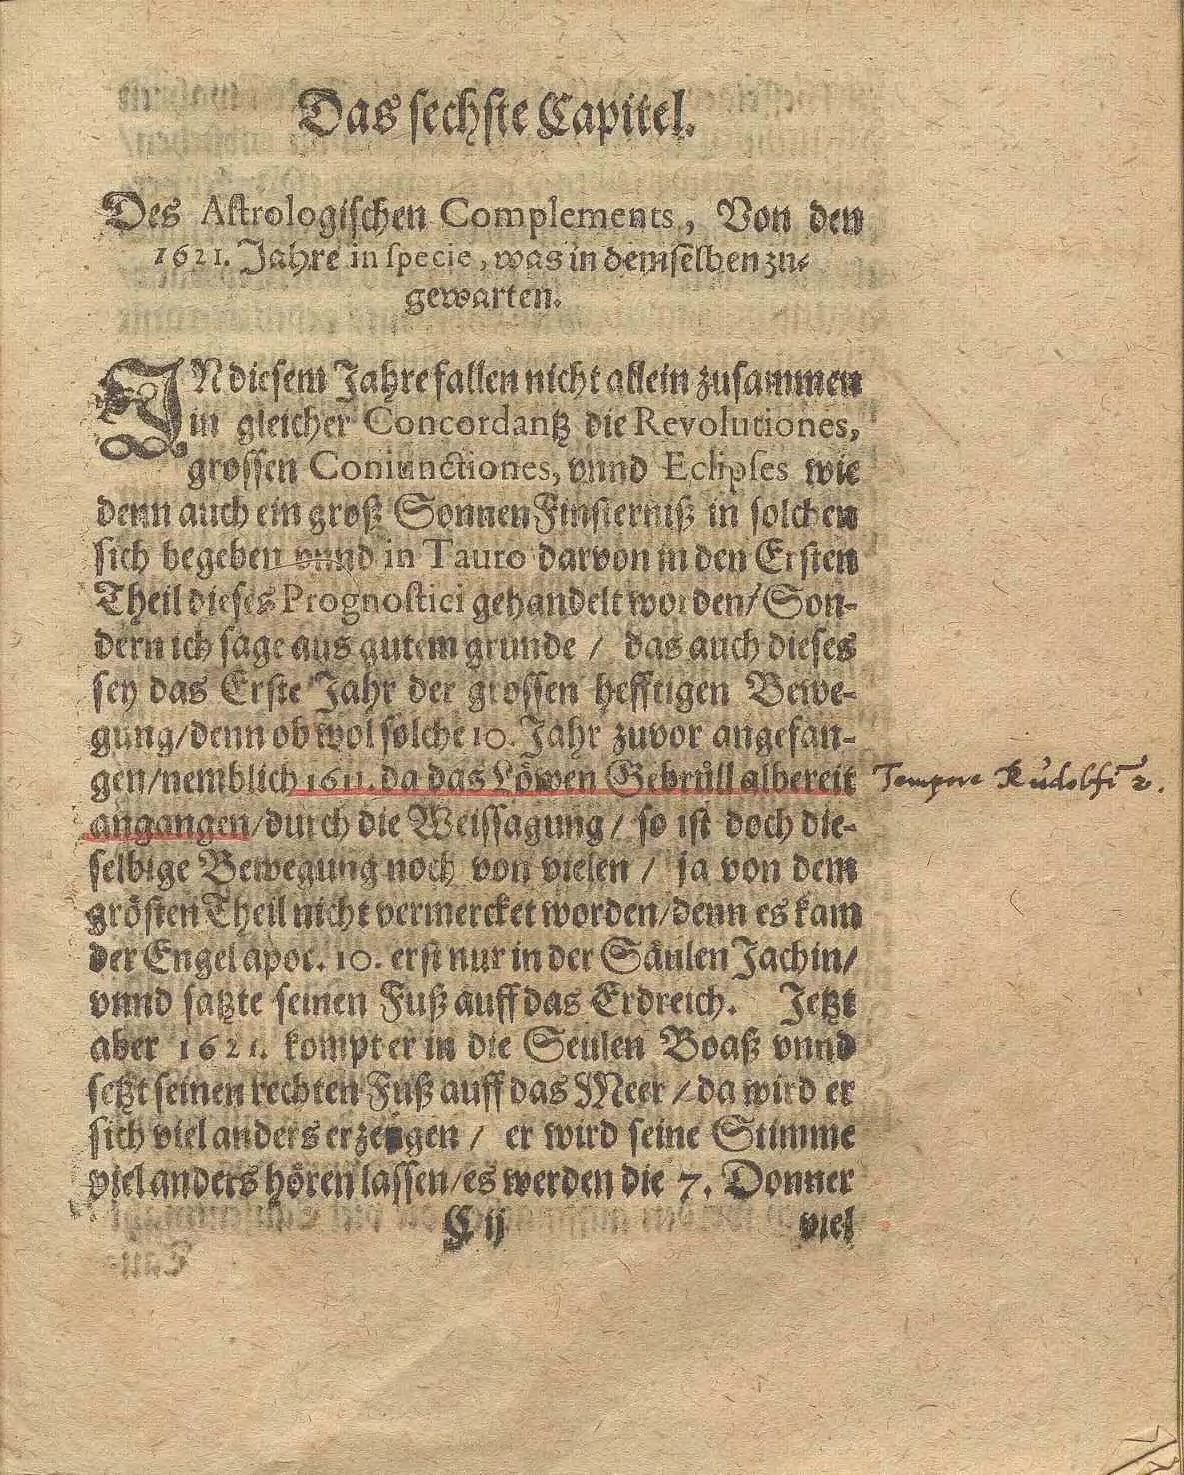 Das sechste Capitel.
Des Astrologischen Complements, Von den
1621. Jahre in specie, was in demselben zu⸗
gewarten.
IN diesem Jahre fallen nicht allein zusammen
in gleicher Concordantz die Revolutiones,
grossen Coniunctiones, vnnd Eclipses wie
denn auch ein groß Sonnen Finsterniß in solchen
sich begeben vnnd in Tauro darvon in den Ersten
Theil dieses Prognostici gehandelt worden/ Son-
dern ich sage aus gutem grunde / das auch dieses
sey das Erste Jahr der grossen hefftigen Bewe-
gung/denn ob wol solche 10. Jahr zuvor angefan-
gen/nemblich 1611. da das Löwen Gebrüll albereit Tempore Rudolfi 2.
angangen/durch die Weissagung/ so ist doch die-
selbige Bewegung noch von vielen / ja von dem
grösten Theil nicht vermercket worden/denn es kam
der Engel apoc. 10. erst nur in der Säulen Jachin/
vnnd satzte seinen Fuß auff das Erdreich. Jetzt
aber 1621. kompt er in die Seulen Boaß vnnd
setzt seinen rechten Fuß auff das Meer / da wird er
sich viel anders erzeigen / er wird seine Stimme
viel anders hören lassen/es werden die 7. Donner
C ij viel